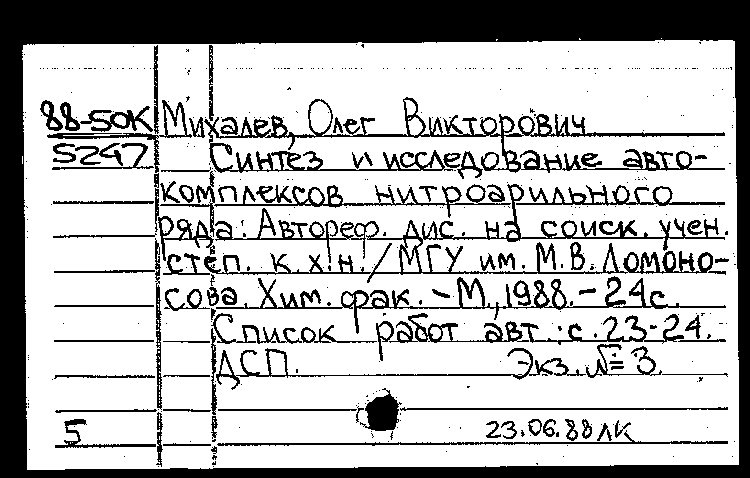 88-50К Михалев, Олег Викторович
5247 Синтез и исследование авто-
комплексов нитроарильного
ряда: Автореф. дис. на соиск. учен.
степ. к. х. н. / МГУ им. М.В. Ломоно-
сова. Хим. фак. - М., 1988. - 24 с.
Список работ авт.: с. 23-24.
ДСП. Экз. № 3.
5 23.06.88 ЛК